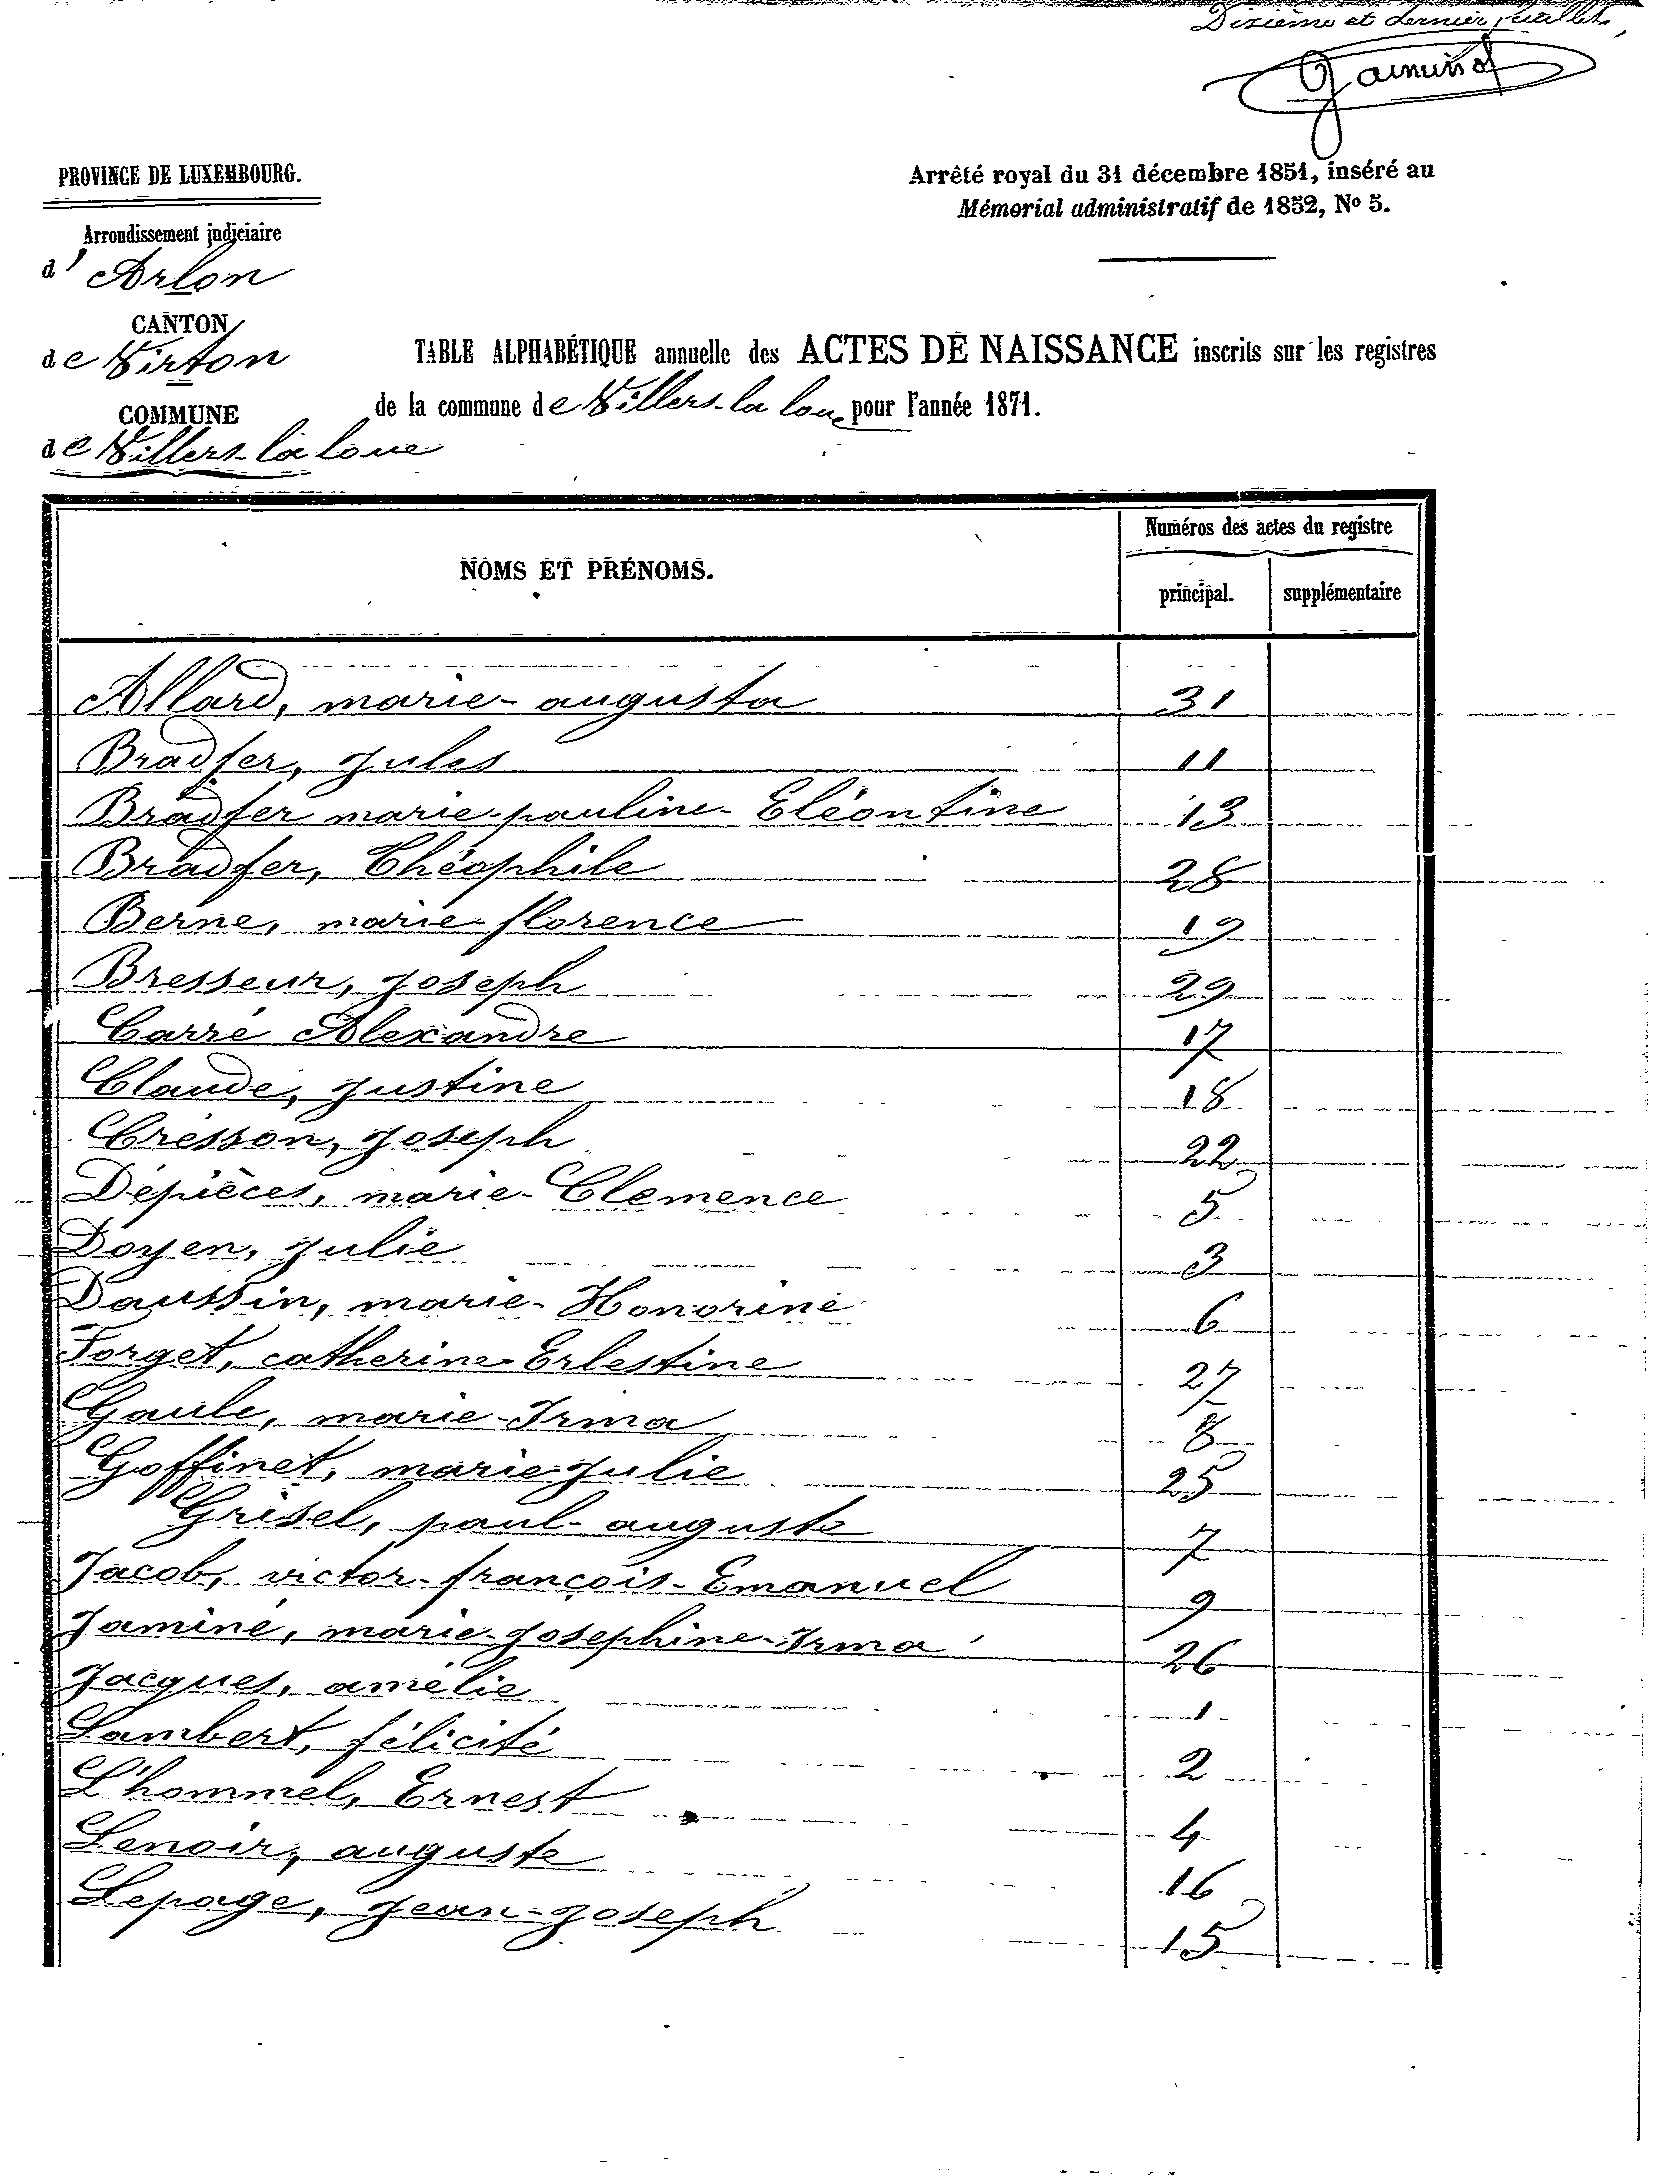 Dixième et dernier feuillet,
PROVINCE DE LUXEMBOURG.
Arrêté royal du 31 décembre 1851, inséré au
Mémorial administratif de 1852, No 5.
Arrondissement judiciaire
d' Arlon
CANTON
de Virton
COMMUNE
de Villers-la loue
TABLE ALPHABÉTIQUE annuelle des ACTES DE NAISSANCE inscrits sur les registres
de la commune de Villers-la loue pour l'année 1871.
NOMS ET PRÉNOMS.
Numéros des actes du registre
principal.
supplémentaire
Allard, marie-augusta 31
Bradfer, Jules 11
Bradfer marie-pauline-Eléontine 13
Bradfer, Théophile 28
Berne, marie-florence 19
Bresseur, Joseph 29
Carré Alexandre 17
Claude, Justine 18
Cresson, Joseph 22
Dépièces, marie-Clemence 5
Doyen, Julie 3
Daussin, marie-Honorine 6
Forget, catherine-Erlestine 27
Gaule, marie-Irma 8
Goffinet, marie-Julie 25
Grisel, paul-auguste 7
Jacob, victor-françois-Emanuel 9
Jaminé, marie-Josephine-Irma 26
Jacques, amélie 1
Lambert, félicité 2
L'hommel, Ernest 4
Lenoir, auguste 16
Lepage, Jean-Joseph 15